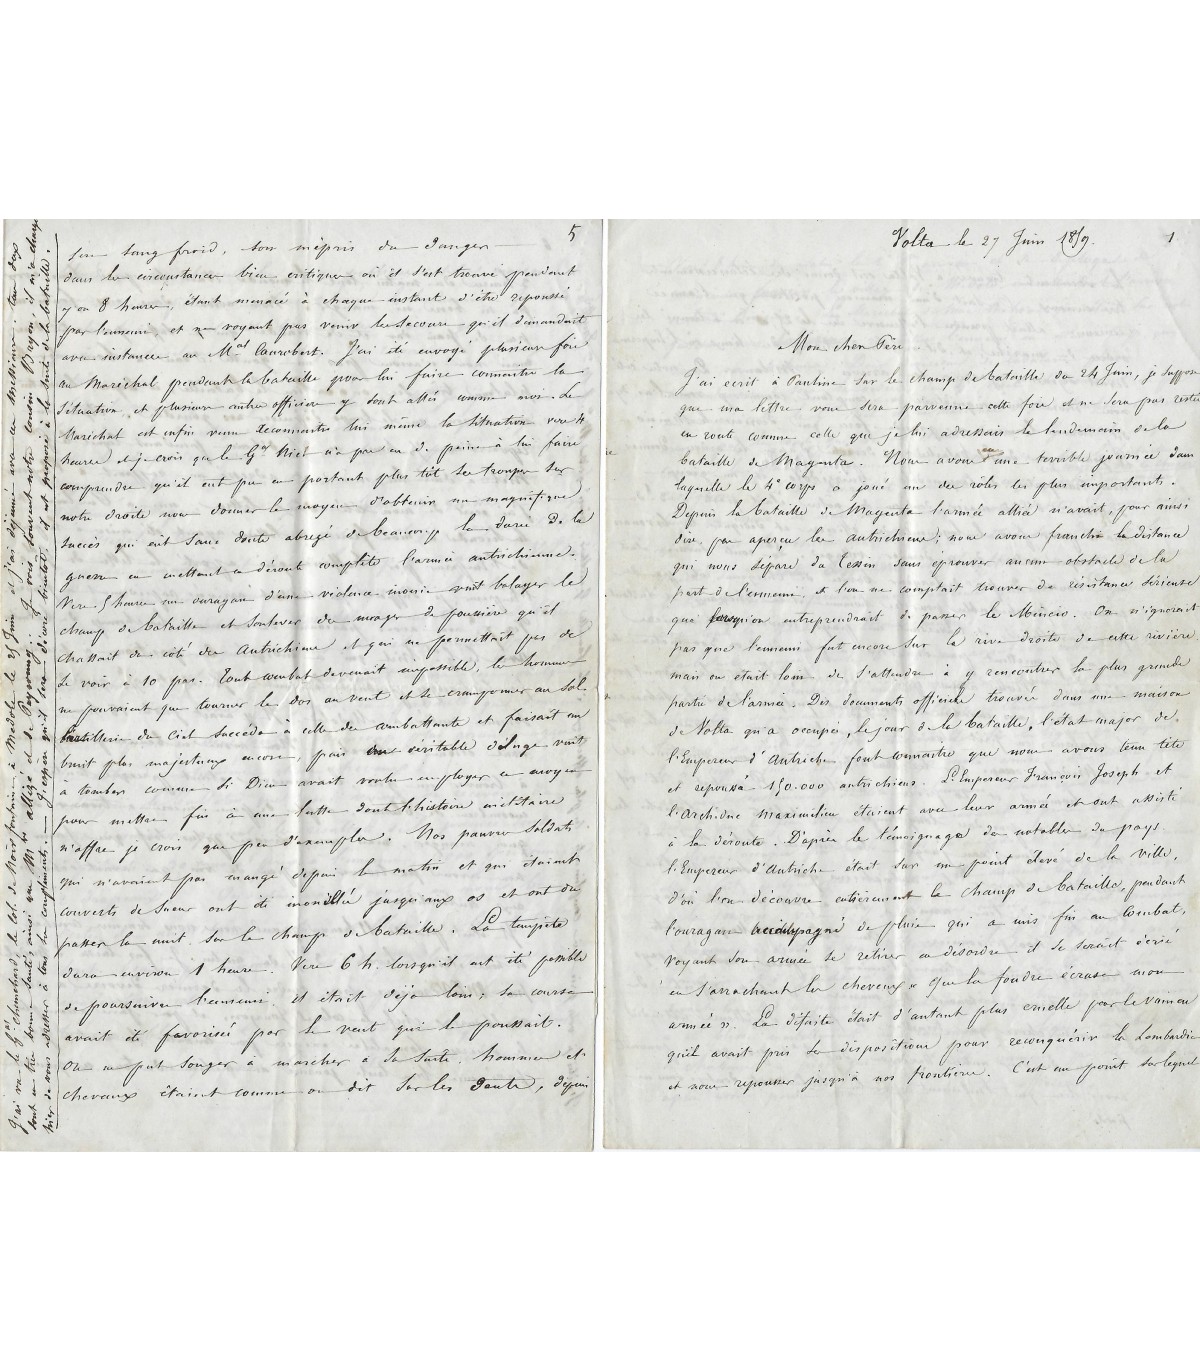 5
Son sang froid, son mépris du danger
dans les circonstances bien critiques où il s'est trouvé pendant
plus de 8 heures, étant menacé à chaque instant d'être repoussé
par l'ennemi, et ne voyant pas venir les secours qu'il demandait
avec instances au Mal Canrobert. J'ai été envoyé plusieurs fois
au Maréchal pendant la bataille pour lui faire connaître la
situation, et plusieurs autres officiers y sont allés comme moi. Le
Maréchal est enfin venu reconnaître lui même la situation vers 4
heures et je crois que le Gal Niel n'a pas eu de peine à lui faire
comprendre qu'il eut pu en portant plus tôt ses troupes sur
notre droite nous donner le moyen d'obtenir un magnifique
succès qui eut sans doute abrégé de beaucoup la durée de la
guerre en mettant en déroute complète l'armée autrichienne.
Vers 5 heures un ouragan d'une violence inouïe vint balayer le
champ de bataille et soulever des nuages de poussière qu'il
chassait du côté des Autrichiens et qui ne permettait pas de
se voir à 10 pas. Tout combat devenait impossible, les hommes
ne pouvaient que tourner le dos au vent et se cramponner au sol.
L'artillerie du Ciel succéda à celle des combattants et faisait un
bruit plus majestueux encore, puis un véritable déluge vint
à tomber comme si Dieu avait voulu employer ce moyen
pour mettre fin à une lutte dont l'histoire militaire
n'offre je crois que peu d'exemples. Nos pauvres soldats
qui n'avaient pas mangé depuis le matin et qui étaient
couverts de sueur ont été mouillés jusqu'aux os et ont du
passer la nuit sur le champ de bataille. La tempête
dura environ 1 heure. Vers 6 h. lorsqu'il eut été possible
de poursuivre l'ennemi, il était déjà loin; sa course
avait été favorisée par le vent qui le poussait.
On ne put songer à marcher à sa suite, hommes et
chevaux étaient comme on dit sur les dents, depuis
J'ai vu le Gal Chouchard, le Col. de Noirfontaine à Medole le 25 Juin et j'ai déjeuné avec ces Messieurs. tous deux
sont en très bonne santé, ainsi que Mrs allizé et de Peyronny. Je vois souvent notre cousin Bryon, il m'a chargé
hier de vous adresser à tous ses compliments. J'espère qu'il sera décoré bientôt, il est proposé à la suite de la bataille.
Volta le 27 Juin 1859.
1
Mon cher Père
J'ai ecrit à Pauline sur le champ de bataille du 24 Juin, je suppose
que ma lettre vous sera parvenue cette fois et ne sera pas restée
en route comme celle que je lui adressais le lendemain de la
bataille de Magenta. Nous avons eu une terrible journée dans
laquelle le 4e corps a joué un des rôles les plus importants.
Depuis la bataille de Magenta l'armée alliée n'avait, pour ainsi
dire, pas aperçu les autrichiens; nous avons franchi la distance
qui nous sépare du Tessin sans éprouver aucun obstacle de la
part de l'ennemi, et l'on ne comptait trouver de résistance sérieuse
que lorsqu'on entreprendrait de passer le Mincio. On n'ignorait
pas que l'ennemi fut encore sur la rive droite de cette rivière
mais on était loin de s'attendre à y rencontrer la plus grande
partie de l'armée. Des documents officiels trouvés dans une maison
de Volta qu'a occupée, le jour de la bataille, l'état major de
l'Empereur d'Autriche font connaître que nous avons tenu tête
et repoussé 150.000 autrichiens. L'Empereur François Joseph et
l'Archiduc Maximilien étaient avec leur armée et ont assisté
à la déroute. D'après le témoignage des notables du pays
l'Empereur d'Autriche était sur un point élevé de la ville,
d'où l'on découvre entièrement le champ de bataille, pendant
l'ouragan accompagné de pluie qui a mis fin au combat,
Voyant son armée se retirer en désordre il se serait écrié
en s'arrachant les cheveux « Que la foudre écrase mon
armée ». La défaite était d'autant plus cruelle pour le vaincu
qu'il avait pris ses dispositions pour reconquérir la Lombardie
et nous repousser jusqu'à nos frontières. C'est un point sur lequel